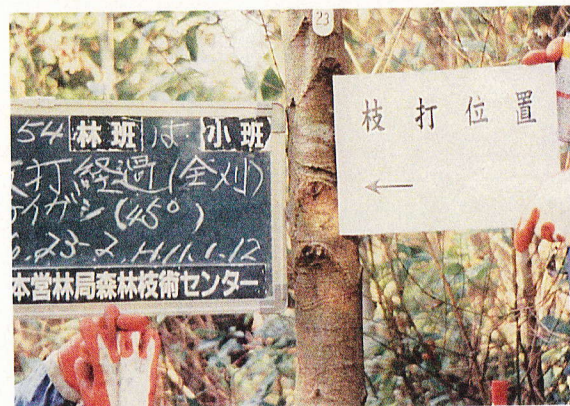 54 林班 は 小班
打経過(全刈)
イガシ(45°)
.23-2 H.11.1.12
本営林局森林技術センター
23
枝打位置
←